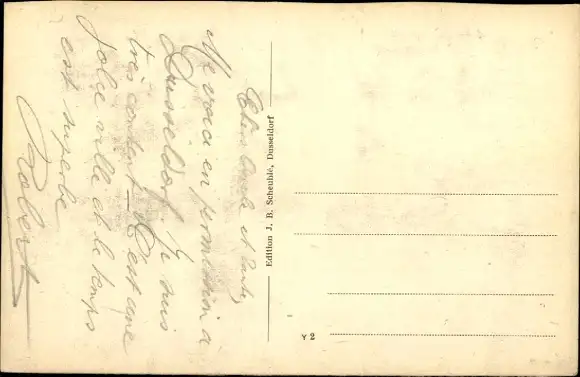 Chers Oncle et Tante
Me voici en permission à
Dusseldorf. Je suis
très content – C'est une
jolie ville et le temps
est superbe
Robert
Edition J. B. Scheuhlé, Dusseldorf
Y 2